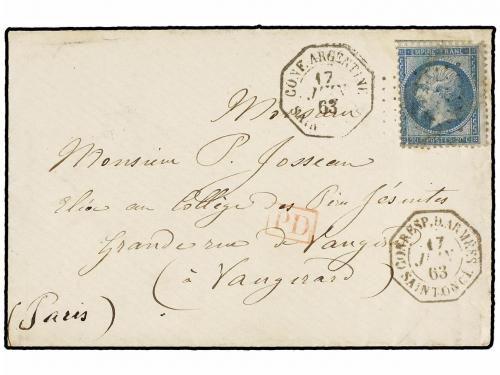 CONF. ARGENTINE
17
JUIN
63
EMPIRE FRANC
20 C POSTES 20 C
Monsieur
Monsieur P. Josseau
Elève au Collège des Pères Jésuites
PD
Grande rue de Vaugirard
(à Vaugirard)
(Paris)
CORRESP. D. ARMEES
17
JUIN
63
SAINTONGE